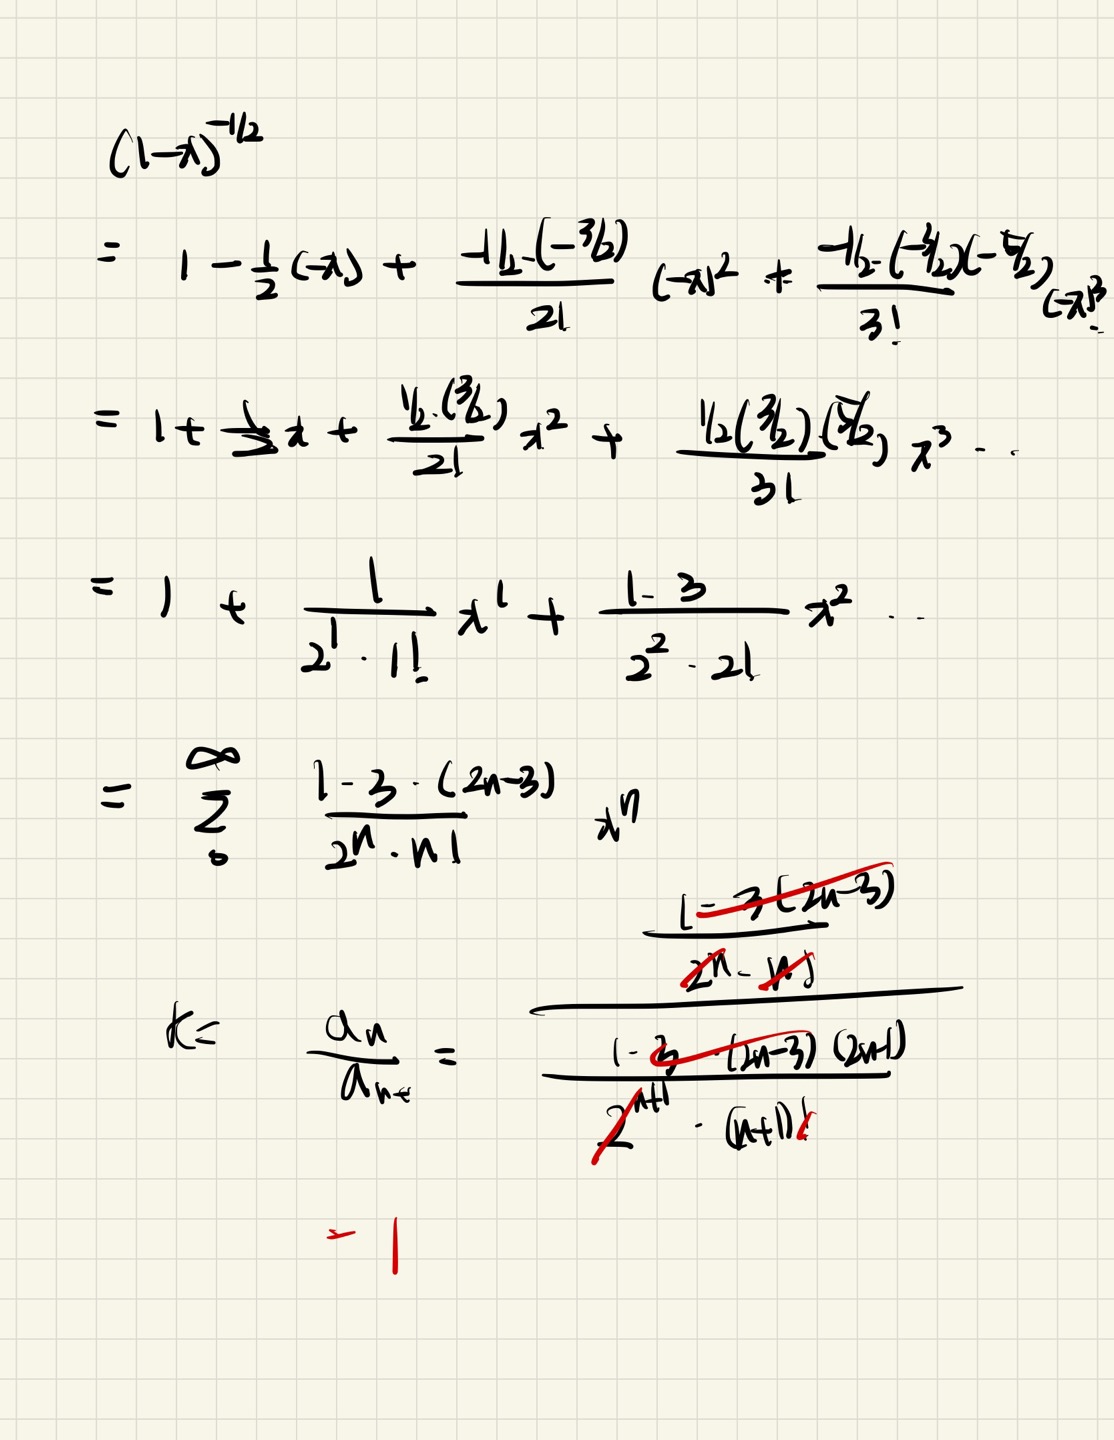 (1-x)^{-1/2}
= 1 - \frac{1}{2}(-x) + \frac{-1/2 \cdot (-3/2)}{2!} (-x)^2 + \frac{-1/2 \cdot (-3/2)(-5/2)}{3!} (-x)^3 ..
= 1 + \frac{1}{2}x + \frac{1/2 \cdot (3/2)}{2!} x^2 + \frac{1/2 (3/2) \cdot (5/2)}{3!} x^3 ...
= 1 + \frac{1}{2^1 \cdot 1!} x^1 + \frac{1 \cdot 3}{2^2 \cdot 2!} x^2 ...
= \sum_{0}^{\infty} \frac{1 \cdot 3 \cdot (2n-3)}{2^n \cdot n!} x^n
R = \frac{a_n}{a_{n+}} = \frac{\frac{1 \cdot 3 (2n-3)}{2^n \cdot n!}}{\frac{1 \cdot 3 \cdot (2n-3)(2n-1)}{2^{n+1} \cdot (n+1)!}}
= 1